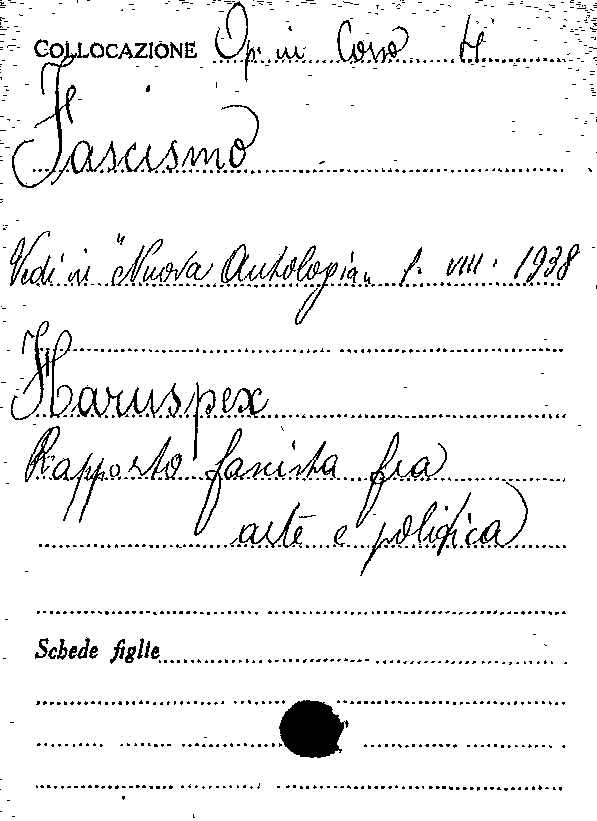 COLLOCAZIONE Op. in Corso
Fascismo
Vedi in "Nuova Antologia„ 1. VIII. 1938
Haruspex
Rapporto fascista fra
arte e politica
Schede figlie